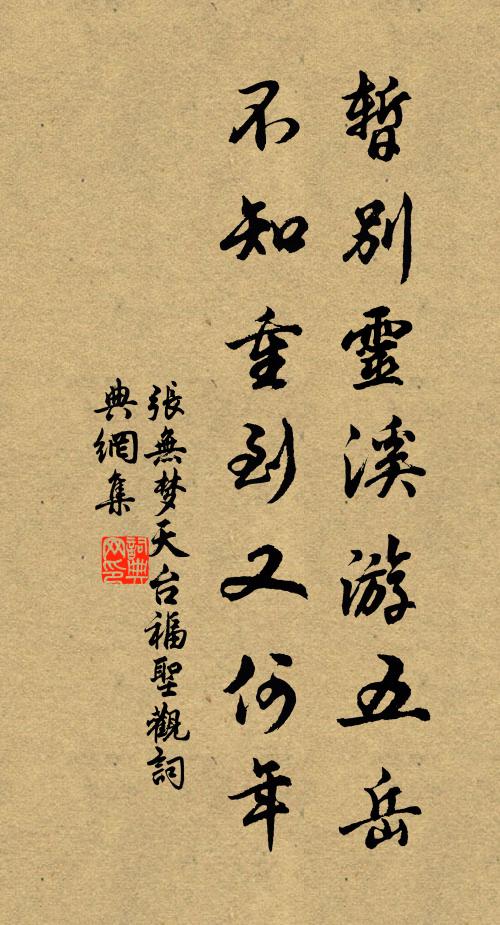 暫別靈溪游五岳
不知重到又何年
張無梦天台福聖觀詞
典網集
詞典网印